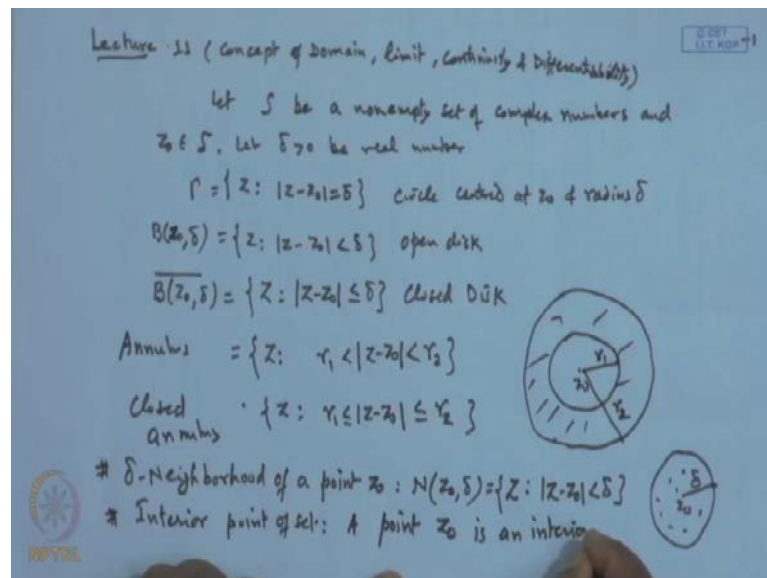 Lecture 11 (Concept of Domain, limit, continuity & Differentiability)
© CET
I.I.T. KGP
Let S be a nonempty set of complex numbers and
z₀ ∈ S. Let δ>0 be real number
Γ = {z : |z-z₀|=δ} circle centred at z₀ & radius δ
B(z₀,δ) = {z : |z-z₀| < δ} open disk
B(z₀,δ)‾ = {z : |z-z₀| ≤ δ} Closed Disk
Annulus = {z : r₁ < |z-z₀| < r₂}
Closed annulus · {z : r₁ ≤ |z-z₀| ≤ r₂}
r₁
z₀
r₂
# δ-Neighborhood of a point z₀ : N(z₀,δ) = {z : |z-z₀| < δ}
δ
z₀
# Interior point of set : A point z₀ is an interio
NPTEL